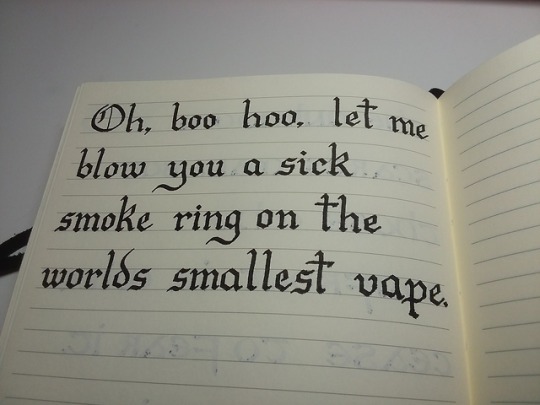 Oh, boo hoo, let me
blow you a sick
smoke ring on the
worlds smallest vape.